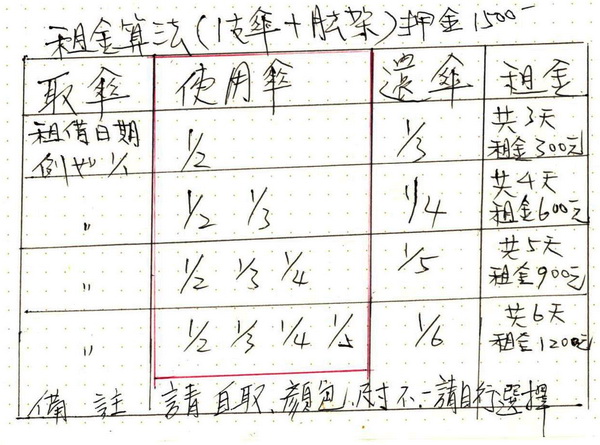 租金算法(1支傘+腳架)押金1500-
取傘 使用傘 還傘 租金
租借日期 例如 1/1 1/2 1/3 共3天 租金300元
〃 1/2 1/3 1/4 共4天 租金600元
〃 1/2 1/3 1/4 1/5 共5天 租金900元
〃 1/2 1/3 1/4 1/5 1/6 共6天 租金1200元
備註 請自取、顏色、尺寸不一請自行選擇